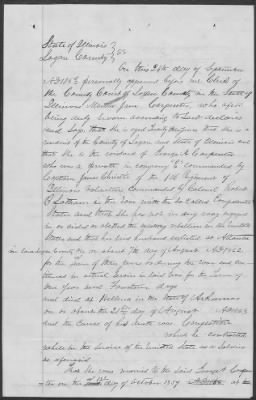 State of Illinois }
Logan County } SS.
On this 24th day of September
AD 1863 personally appeared before me Clerk of
the County Court of Logan County in the State of
Illinois Martha Jane Carpenter, who after
being duly sworn according to Law declares
and says that she is aged Twenty years that she is a
resident of the County of Logan and State of Illinois and
that she is the widow of George A Carpenter
who was a private in Company Commanded by
Captain James Christie of the Regiment of
Illinois Volunteers Commanded by Colonel Robert
B Latham in the war with the so Called Confederate
States and that she has not in any way engaged
in or aided or abetted the rebellion in the United
States and that her said husband enlisted at Atlanta
in Logan County Ills. on about 7th day of August AD 1862
for the term of three years or during the war and con-
tinued in actual service in said war for the term of
one year and fourteen days
and died at Helena in the State of Arkansas
on or about the 21st day of August AD 1863
And the Cause of his death was Congestion
which he contracted
while in the service of the United States as a Soldier
as aforesaid
That she was married to the said George A Carpen-
ter on the day of October 1859 at